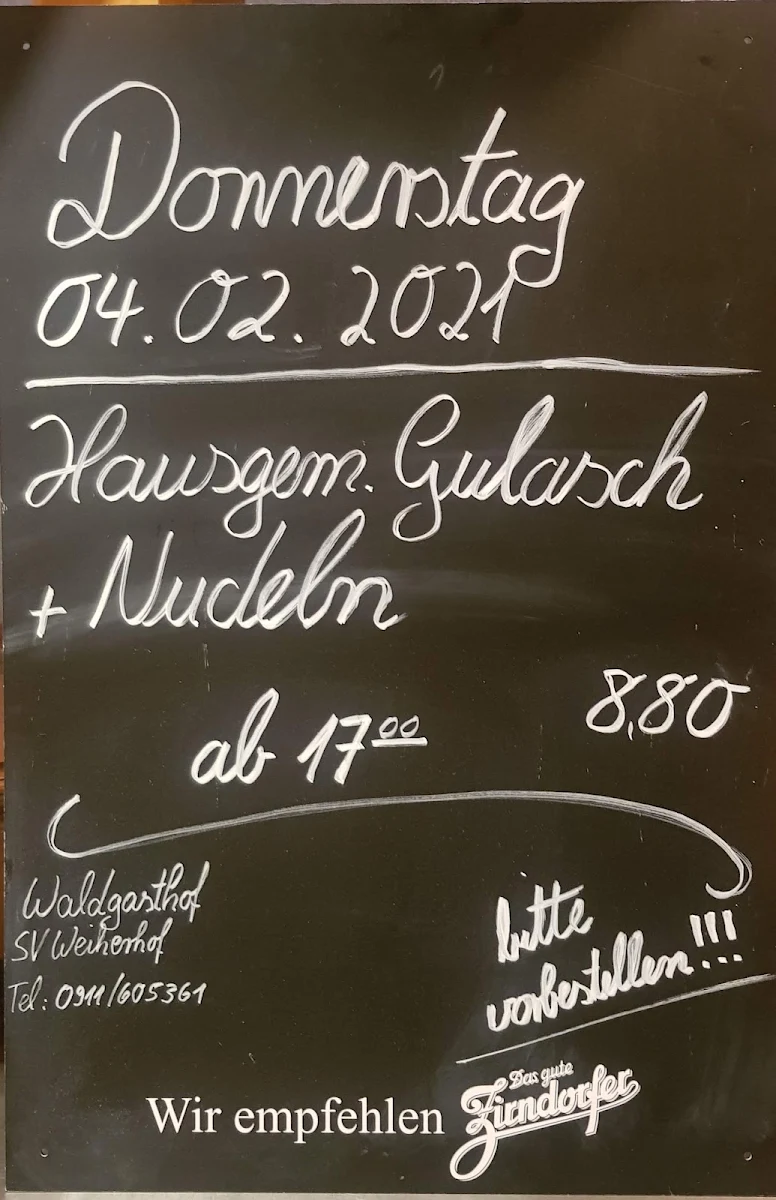 Donnerstag
04.02.2021
Hausgem. Gulasch
+ Nudeln
8,80
ab 17 00
Waldgasthof
SV Weiherhof
Tel: 0911/605361
bitte
vorbestellen!!!
Wir empfehlen Das gute Zirndorfer